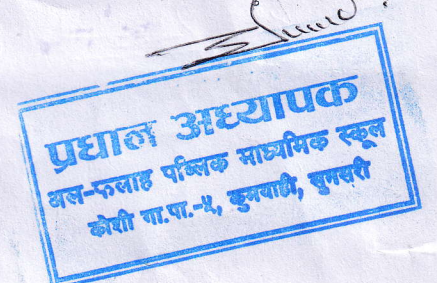 प्रधान अध्यापक
अल-फलाह पब्लिक माध्यमिक स्कूल
कोशी गा.पा.-५, कुमयाही, सुनसरी